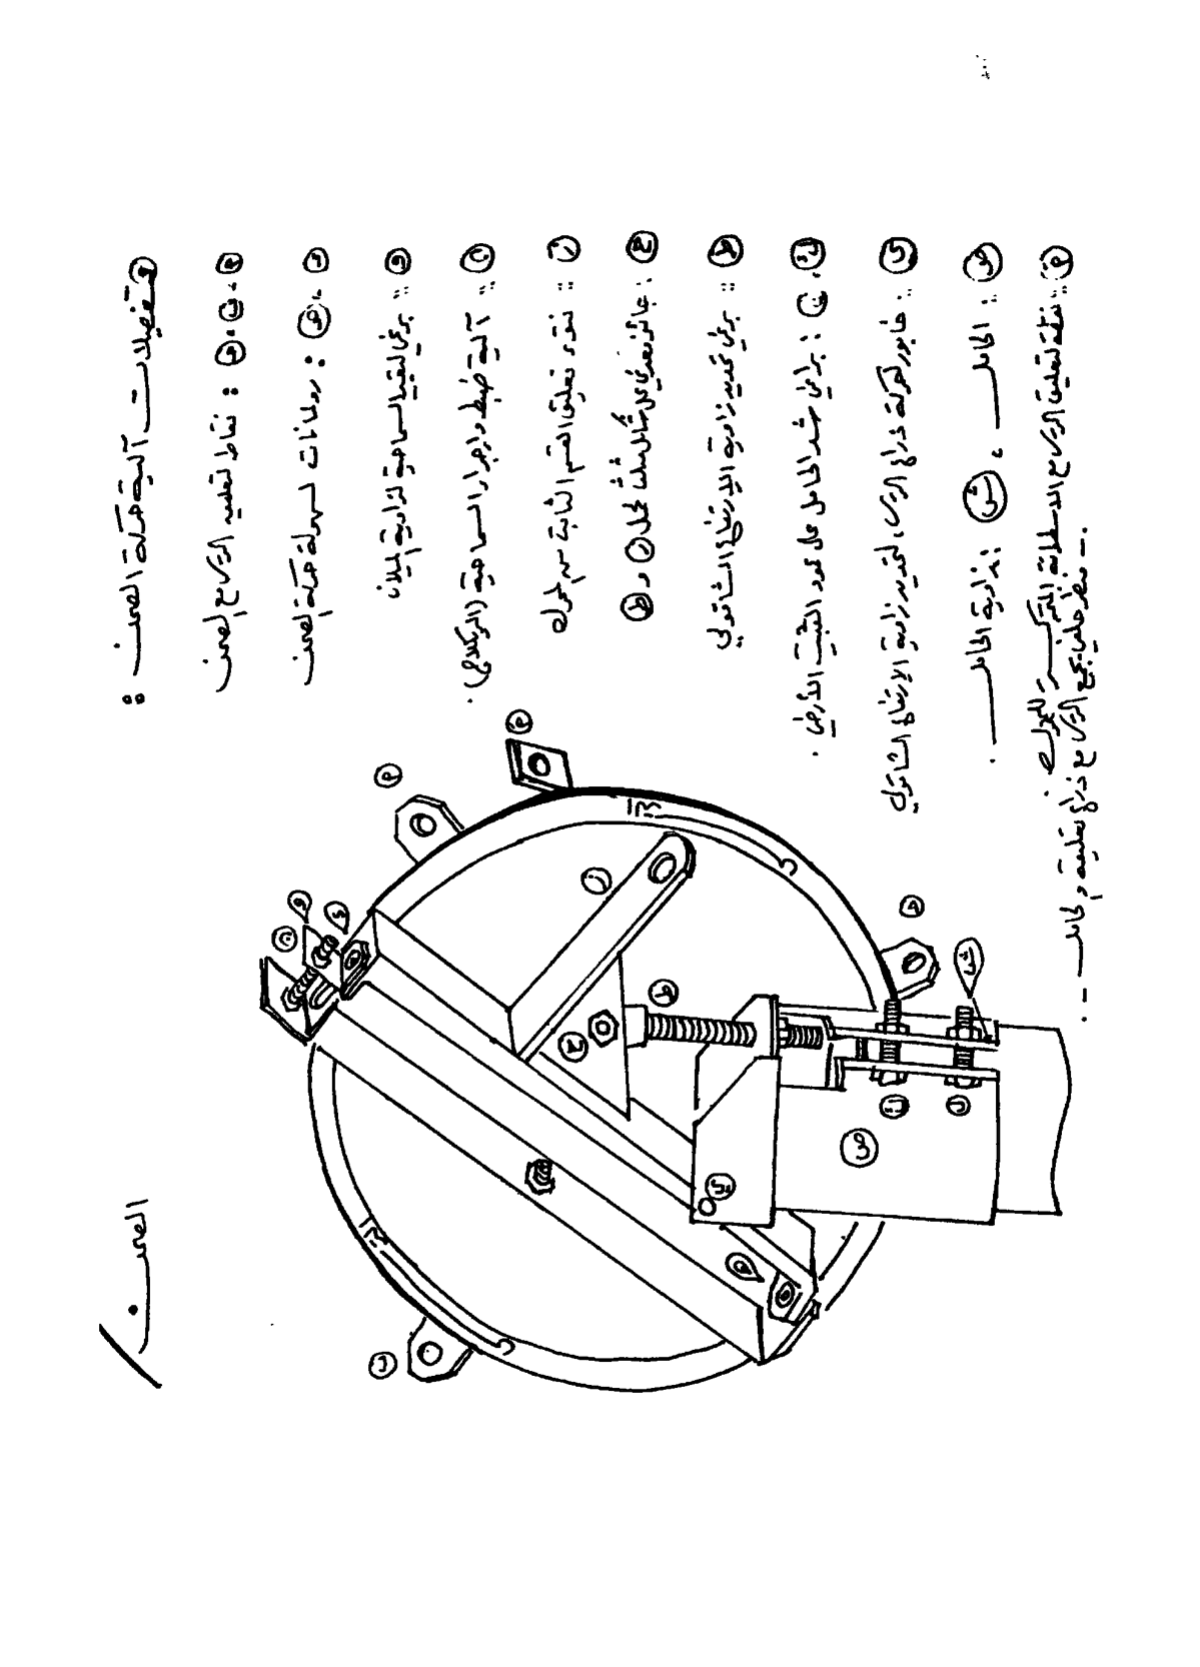 تفصيلات آلية حركة الصحن :
نقاط تعليق الكرسي مع الصحن
رولمانات لسهولة حركة الصحن
و : برغي لتقييد السماحية لزاوية الميلان
ن : آلية ضبط واجبار السماحية (البيكلاج) .
ز : نتوء تعليق القسم الثابت من المحرك
ع : على شكل مثلث لحمل ز و ط
ط : برغي تحديد زاوية الارتفاع الشاقولي
براغي شد الحامل على عمود التثبيت الأرضي .
ي : خابور لحركة ذراع الكرسي لتحديد زاوية الارتفاع الشاقولي
ص : الحامل ، ش : زاوية الحامل .
نقطة لتعليق الكرسي مع الاسطوانة المتحركة للمحرك .
- منظر خلفي يجمع الكرسي مع ذراع تعليقه والحامل - .
الصحن
ن
و
ز
ع
ط
ش
ل
ص
ي